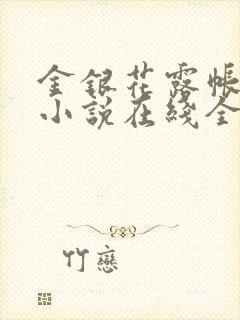 金銀花露帳
小説在綫全
竹戀